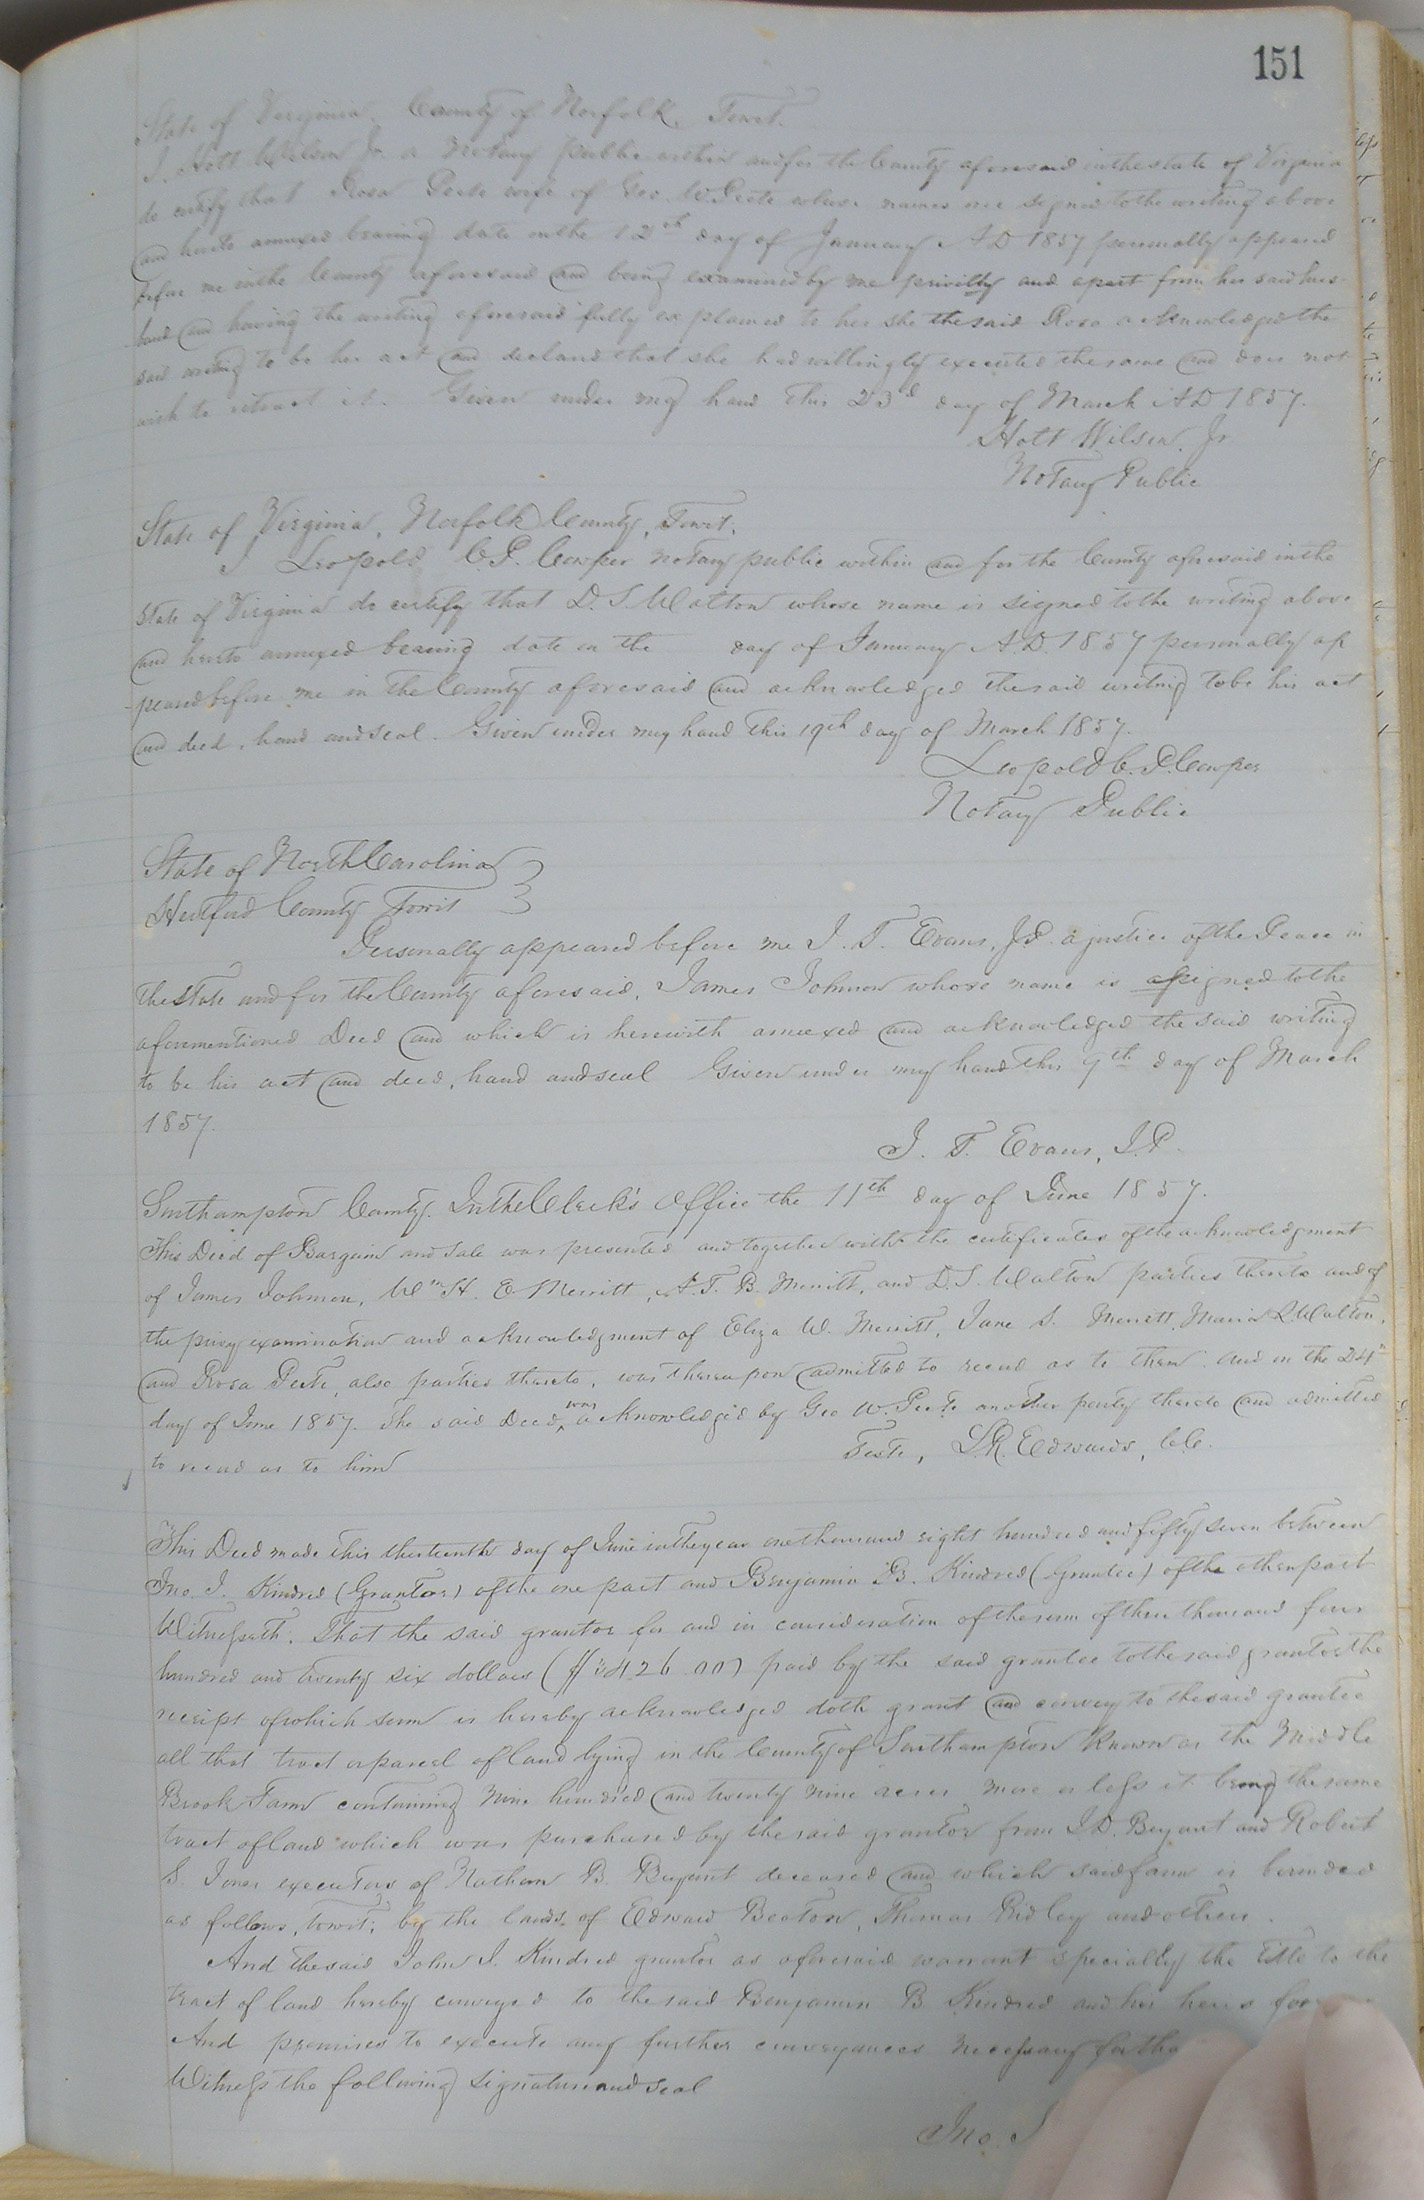 151
State of Virginia, County of Norfolk, Towit.
I, Holt Wilson Jr. a Notary public within and for the County aforesaid in the state of Virginia
do certify that Rosa Peete wife of Geo W. Peete whose names are signed to the writing above
and hereto annexed bearing date on the 12th day of January AD 1857 personally appeared
before me in the County aforesaid and being examined by me privilly and apart from her said hus-
band and having the writing aforesaid fully explained to her she the said Rosa acknowledged the
said writing to be her act and declared that she had willingly executed the same and does not
wish to retract it. Given under my hand this 23d day of March AD 1857.
Holt Wilson, Jr
Notary Public
State of Virginia, Norfolk County, Towit,
I Leopold C. P. Cowper notary public within and for the County aforesaid in the
state of Virginia do certify that D. S. Walton whose name is signed to the writing above
and hereto annexed bearing date on the day of January A.D. 1857 personally ap
peared before me in the County aforesaid and acknowledged the said writing to be his act
and deed, hand and seal. Given under my hand this 19th day of March 1857.
Leopold C. P. Cowper
Notary Public
State of North Carolina
Hertford County Towit
Personally appeared before me J. T. Evans, J.P. a justice of the Peace in
the state and for the County aforesaid, James Johnson whose name is assigned to the
aforementioned Deed and which is herewith annexed and acknowledged the said writing
to be his act and deed, hand and seal Given under my hand this 9th day of March
1857.
J. T. Evans, J.P.
Southampton County. In the Clerk's Office the 11th day of June 1857.
This Deed of Bargain and sale was presented and together with the certificates of the acknowledgment
of James Johnson, Wm H. E Merritt, A. T. B. Merritt, and D. S. Walton parties thereto and of
the privy examination and acknowledgment of Eliza W. Merritt, Jane S. Merritt, Maria Walton,
and Rosa Peete, also parties thereto, was thereupon admitted to record as to them. And on the 24th
day of June 1857. the said Deed was acknowledged by Geo W. Peete another party thereto and admitted
to record as to him
Teste, L. R. Edwards, C.C.
This Deed made this thirteenth day of June in the year one thousand eight hundred and fifty seven between
Jno. J. Kindred (Grantor) of the one part and Benjamin B. Kindred (Grantee) of the other part
Witnesseth. That the said grantor for and in consideration of the sum of three thousand four
hundred and twenty six dollars ($3426.00) paid by the said grantee to the said grantor the
receipt of which sum is hereby acknowledged doth grant and convey to the said grantee
all that tract or parcel of land lying in the County of Southampton known as the Middle
Brook Farm containing nine hundred and twenty nine acres more or less it being the same
tract of land which was purchased by the said grantor from J. D. Bryant and Robert
S. Jones executors of Nathan B. Bryant deceased and which said farm is bounded
as follows, towit; by the lands of Edward Beaton, Thomas Ridley and others.
And the said John J. Kindred grantor as aforesaid warrant specially the title to the
tract of land hereby conveyed to the said Benjamin B. Kindred and his heirs
And promises to execute any further conveyances necessary for the
Witness the following signature and seal
Jno. J